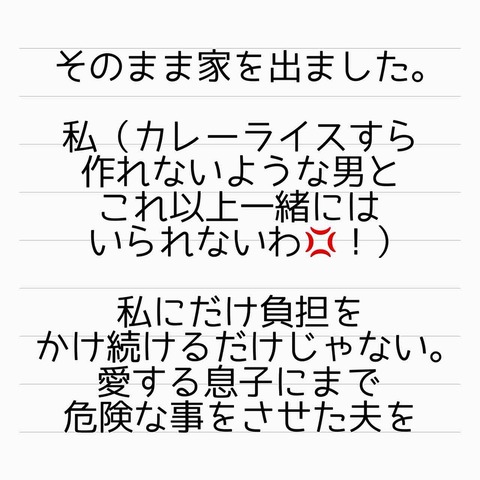 そのまま家を出ました。
私（カレーライスすら
作れないような男と
これ以上一緒には
いられないわ💢！）
私にだけ負担を
かけ続けるだけじゃない。
愛する息子にまで
危険な事をさせた夫を